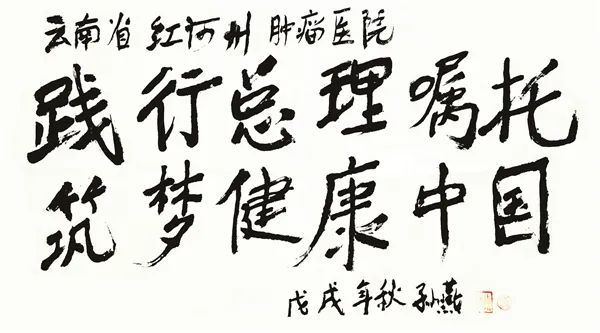 云南省红河州肿瘤医院
践行总理嘱托
筑梦健康中国
戊戌年秋 孙燕